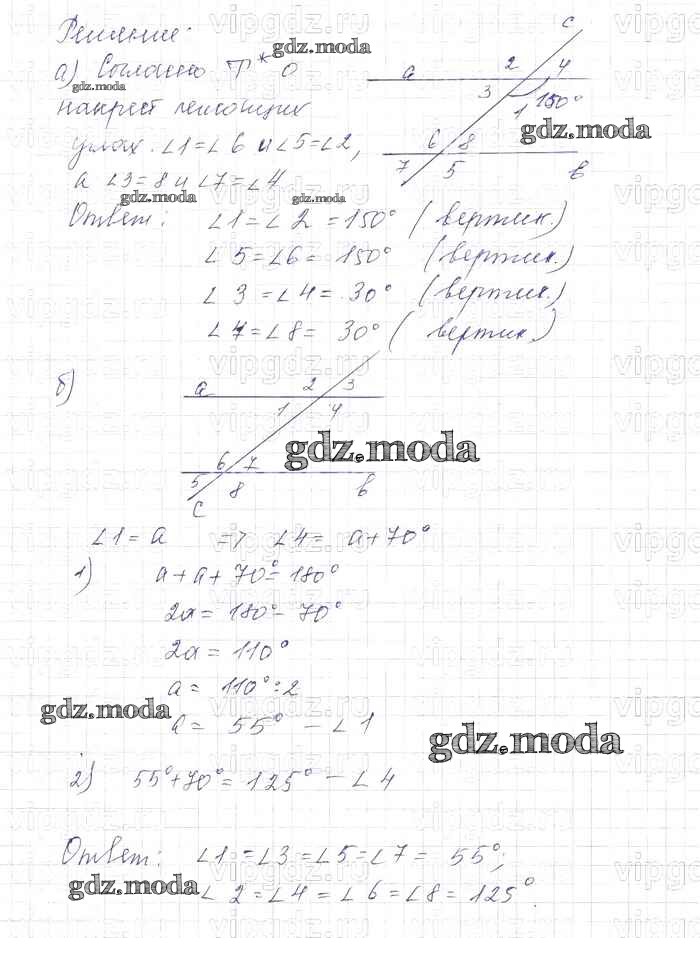 Решение:
gdz.moda
а) Согласно T* о
gdz.moda
накрест лежащих
углах. ∠1=∠6 и ∠5=∠2,
а ∠3=8 и ∠7=∠4
gdz.moda
gdz.moda
a 2 c 4
3 1 150°
gdz.moda
6 8
7 5 b
Ответ: ∠1=∠2=150° (вертик.)
∠5=∠6= 150° (вертик.)
∠3=∠4= 30° (вертик.)
∠7=∠8= 30° (вертик.)
б)
a 2 3
1 4
gdz.moda
6 7
5 8 b
c
∠1= a => ∠4= a+70°
1) a+a+70°=180°
2a= 180°-70°
2a= 110°
a= 110°:2
gdz.moda
a= 55° - ∠1
gdz.moda
2) 55°+70°= 125° - ∠4
Ответ: ∠1=∠3=∠5=∠7= 55°;
gdz.moda
∠2=∠4=∠6=∠8=125°.